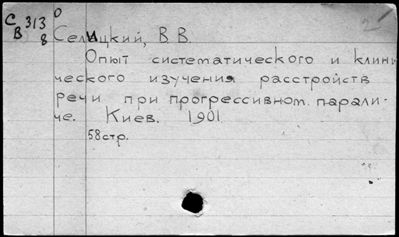 С 313 0
В 8
Селецкий, В.В.
Опыт систематического и клини
ческого изучения расстройств
речи при прогрессивном парали-
че. Киев. 1901
58стр.